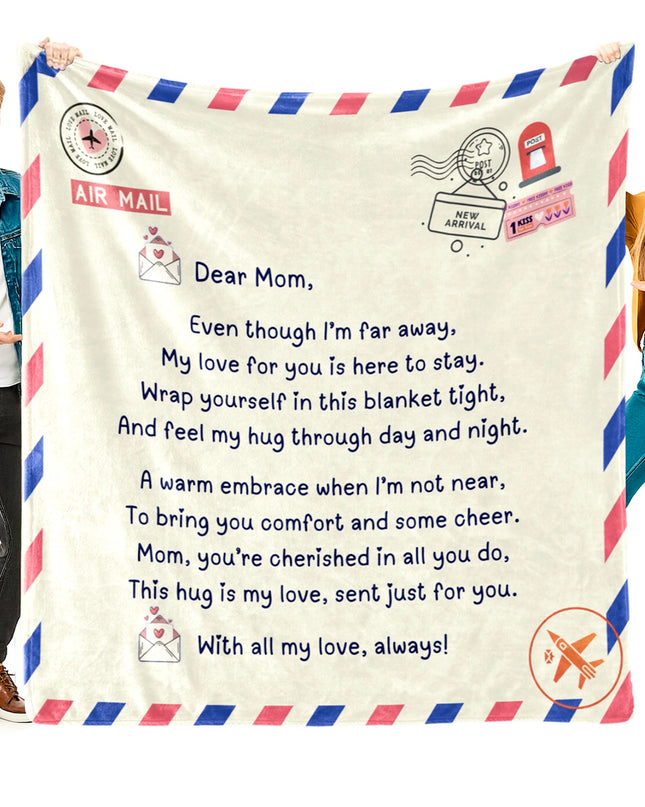 LOVE MAIL LOVE MAIL LOVE MAIL LOVE MAIL
AIR MAIL
POST
POST
NEW
ARRIVAL
1 KISS
Dear Mom,
Even though I'm far away,
My love for you is here to stay.
Wrap yourself in this blanket tight,
And feel my hug through day and night.
A warm embrace when I'm not near,
To bring you comfort and some cheer.
Mom, you're cherished in all you do,
This hug is my love, sent just for you.
With all my love, always!